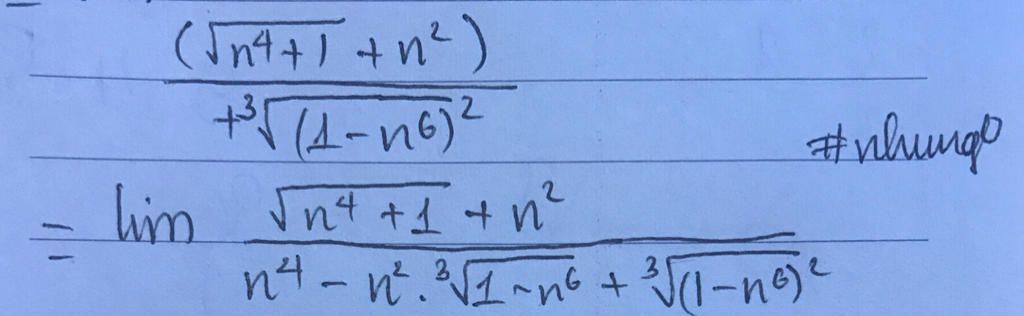 (√n⁴+1 + n²)
+³√(1-n⁶)²
#nhungo
= lim √n⁴+1 + n²
n⁴ - n².³√1-n⁶ + ³√(1-n⁶)²